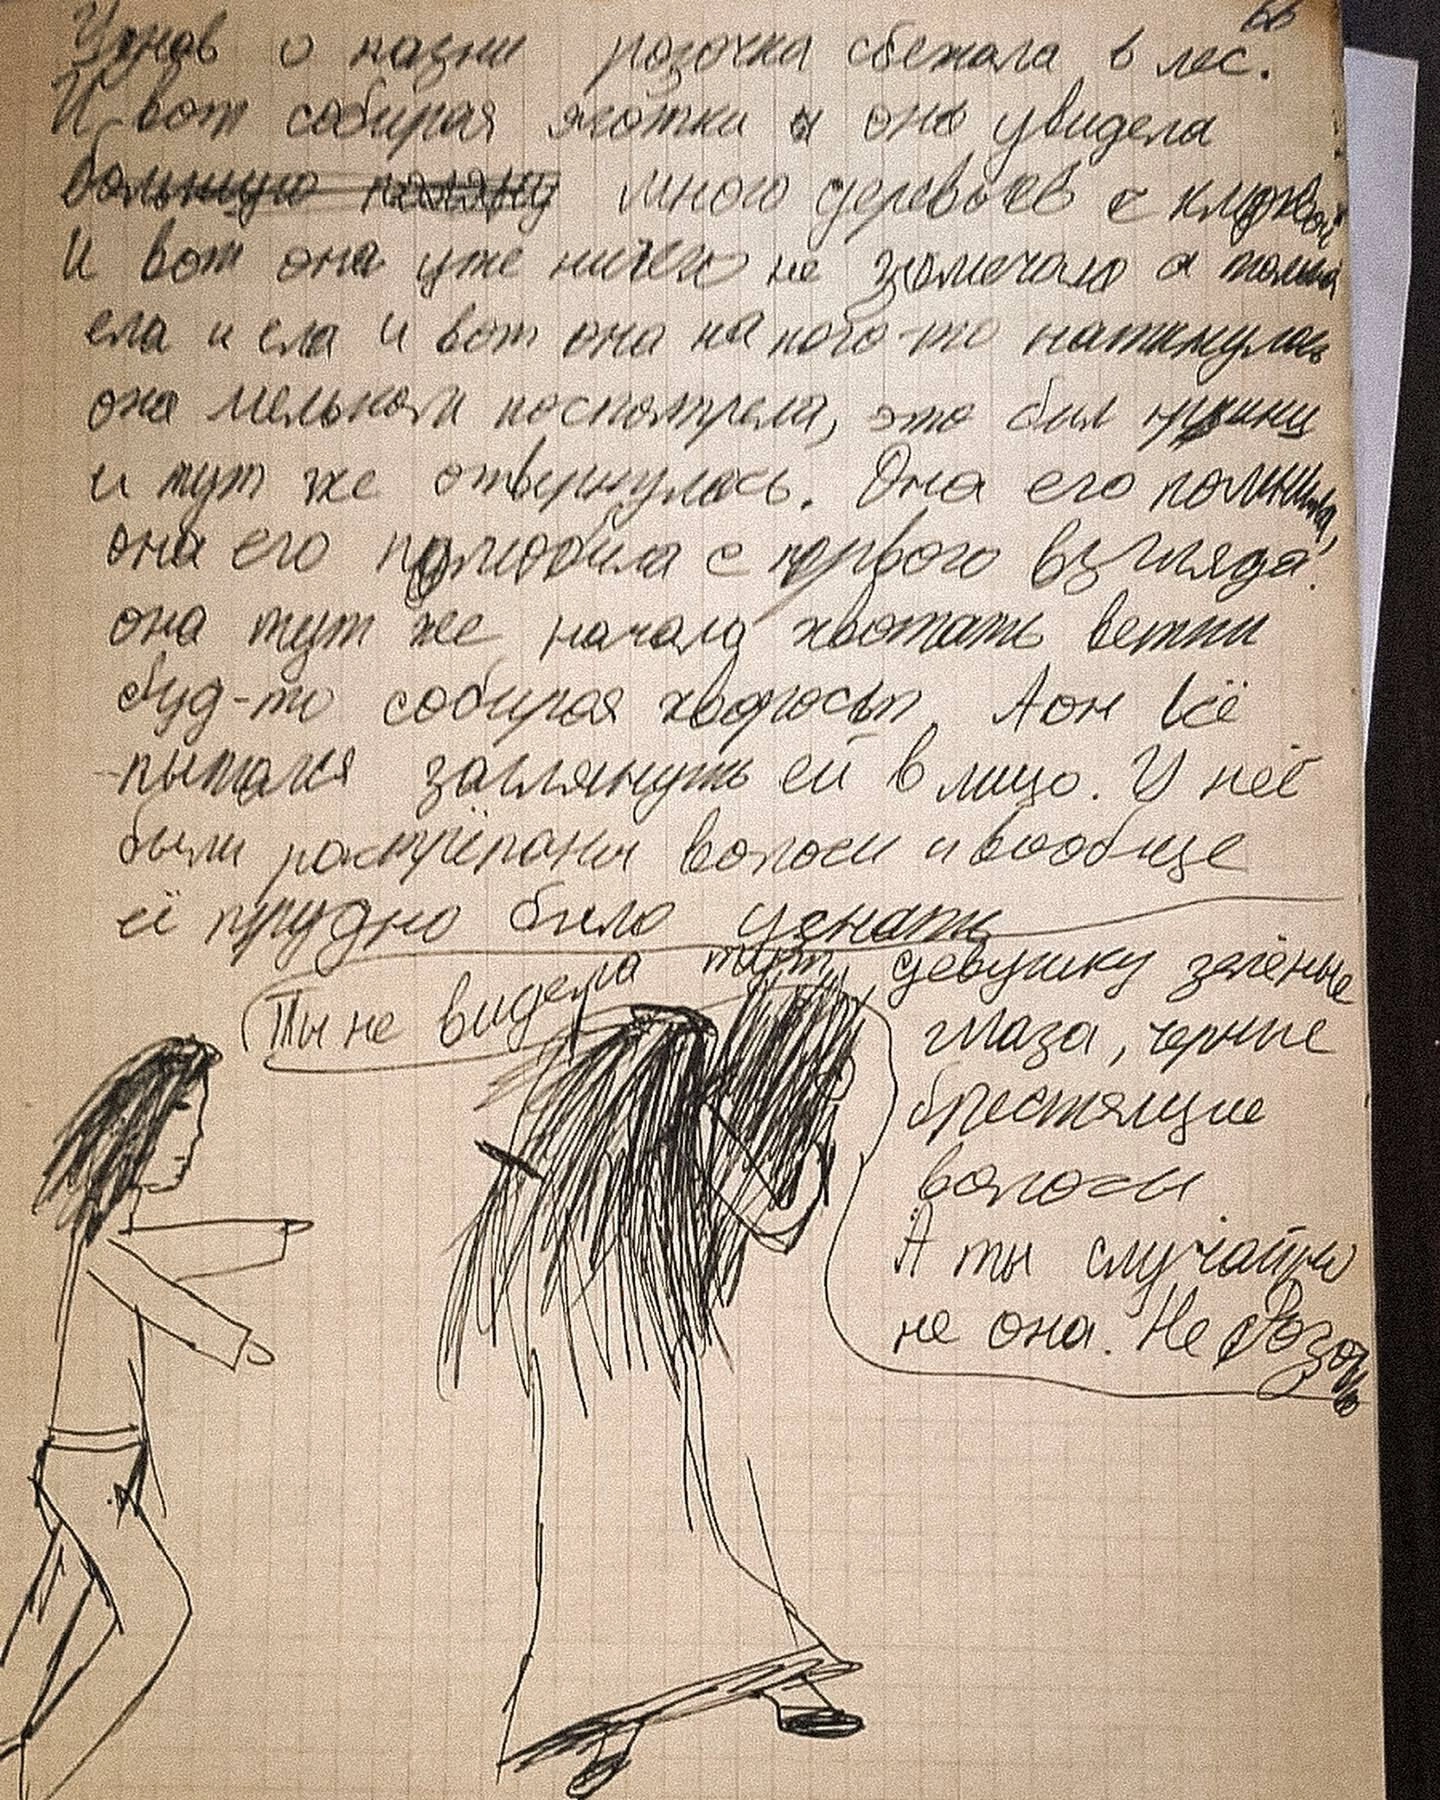 66
Узнав о казни розочка сбежала в лес.
И вот собирая яготки и она увидела
большую поляну много деревьев с клюквой
И вот она уже ничего не замечало а только
ела и ела и вот она на кого-то наткнулась
она мельком поспотрела, это был принц
и тут же отвернулась. Она его помнила,
она его полюбила с первого взгляда.
она тут же начала хвотать ветки
буд-то собирая хворость. А он всё
пытался заглянуть ей в лицо. У неё
были растрёпаны волосы и вообще
её трудно было узнать
Ты не видела тут девушку зелёные
глаза, черные
блестящие
волосы
А ты случайно
не она. Не Розочка